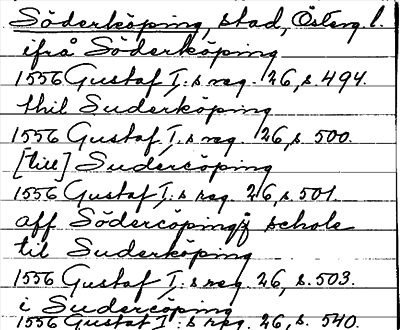 Söderköping, stad, Österg. l.
ifrå Söderköping
1556 Gustaf I:s reg. 26, s. 494.
thil Suderköping
1556 Gustaf I:s reg. 26, s. 500.
[till] Sudercöping
1556 Gustaf I:s reg. 26, s. 501.
aff Södercöping j schole
til Suderköping
1556 Gustaf I:s reg. 26, s. 503.
i Sudercöping
1556 Gustaf I:s reg. 26, s. 540.